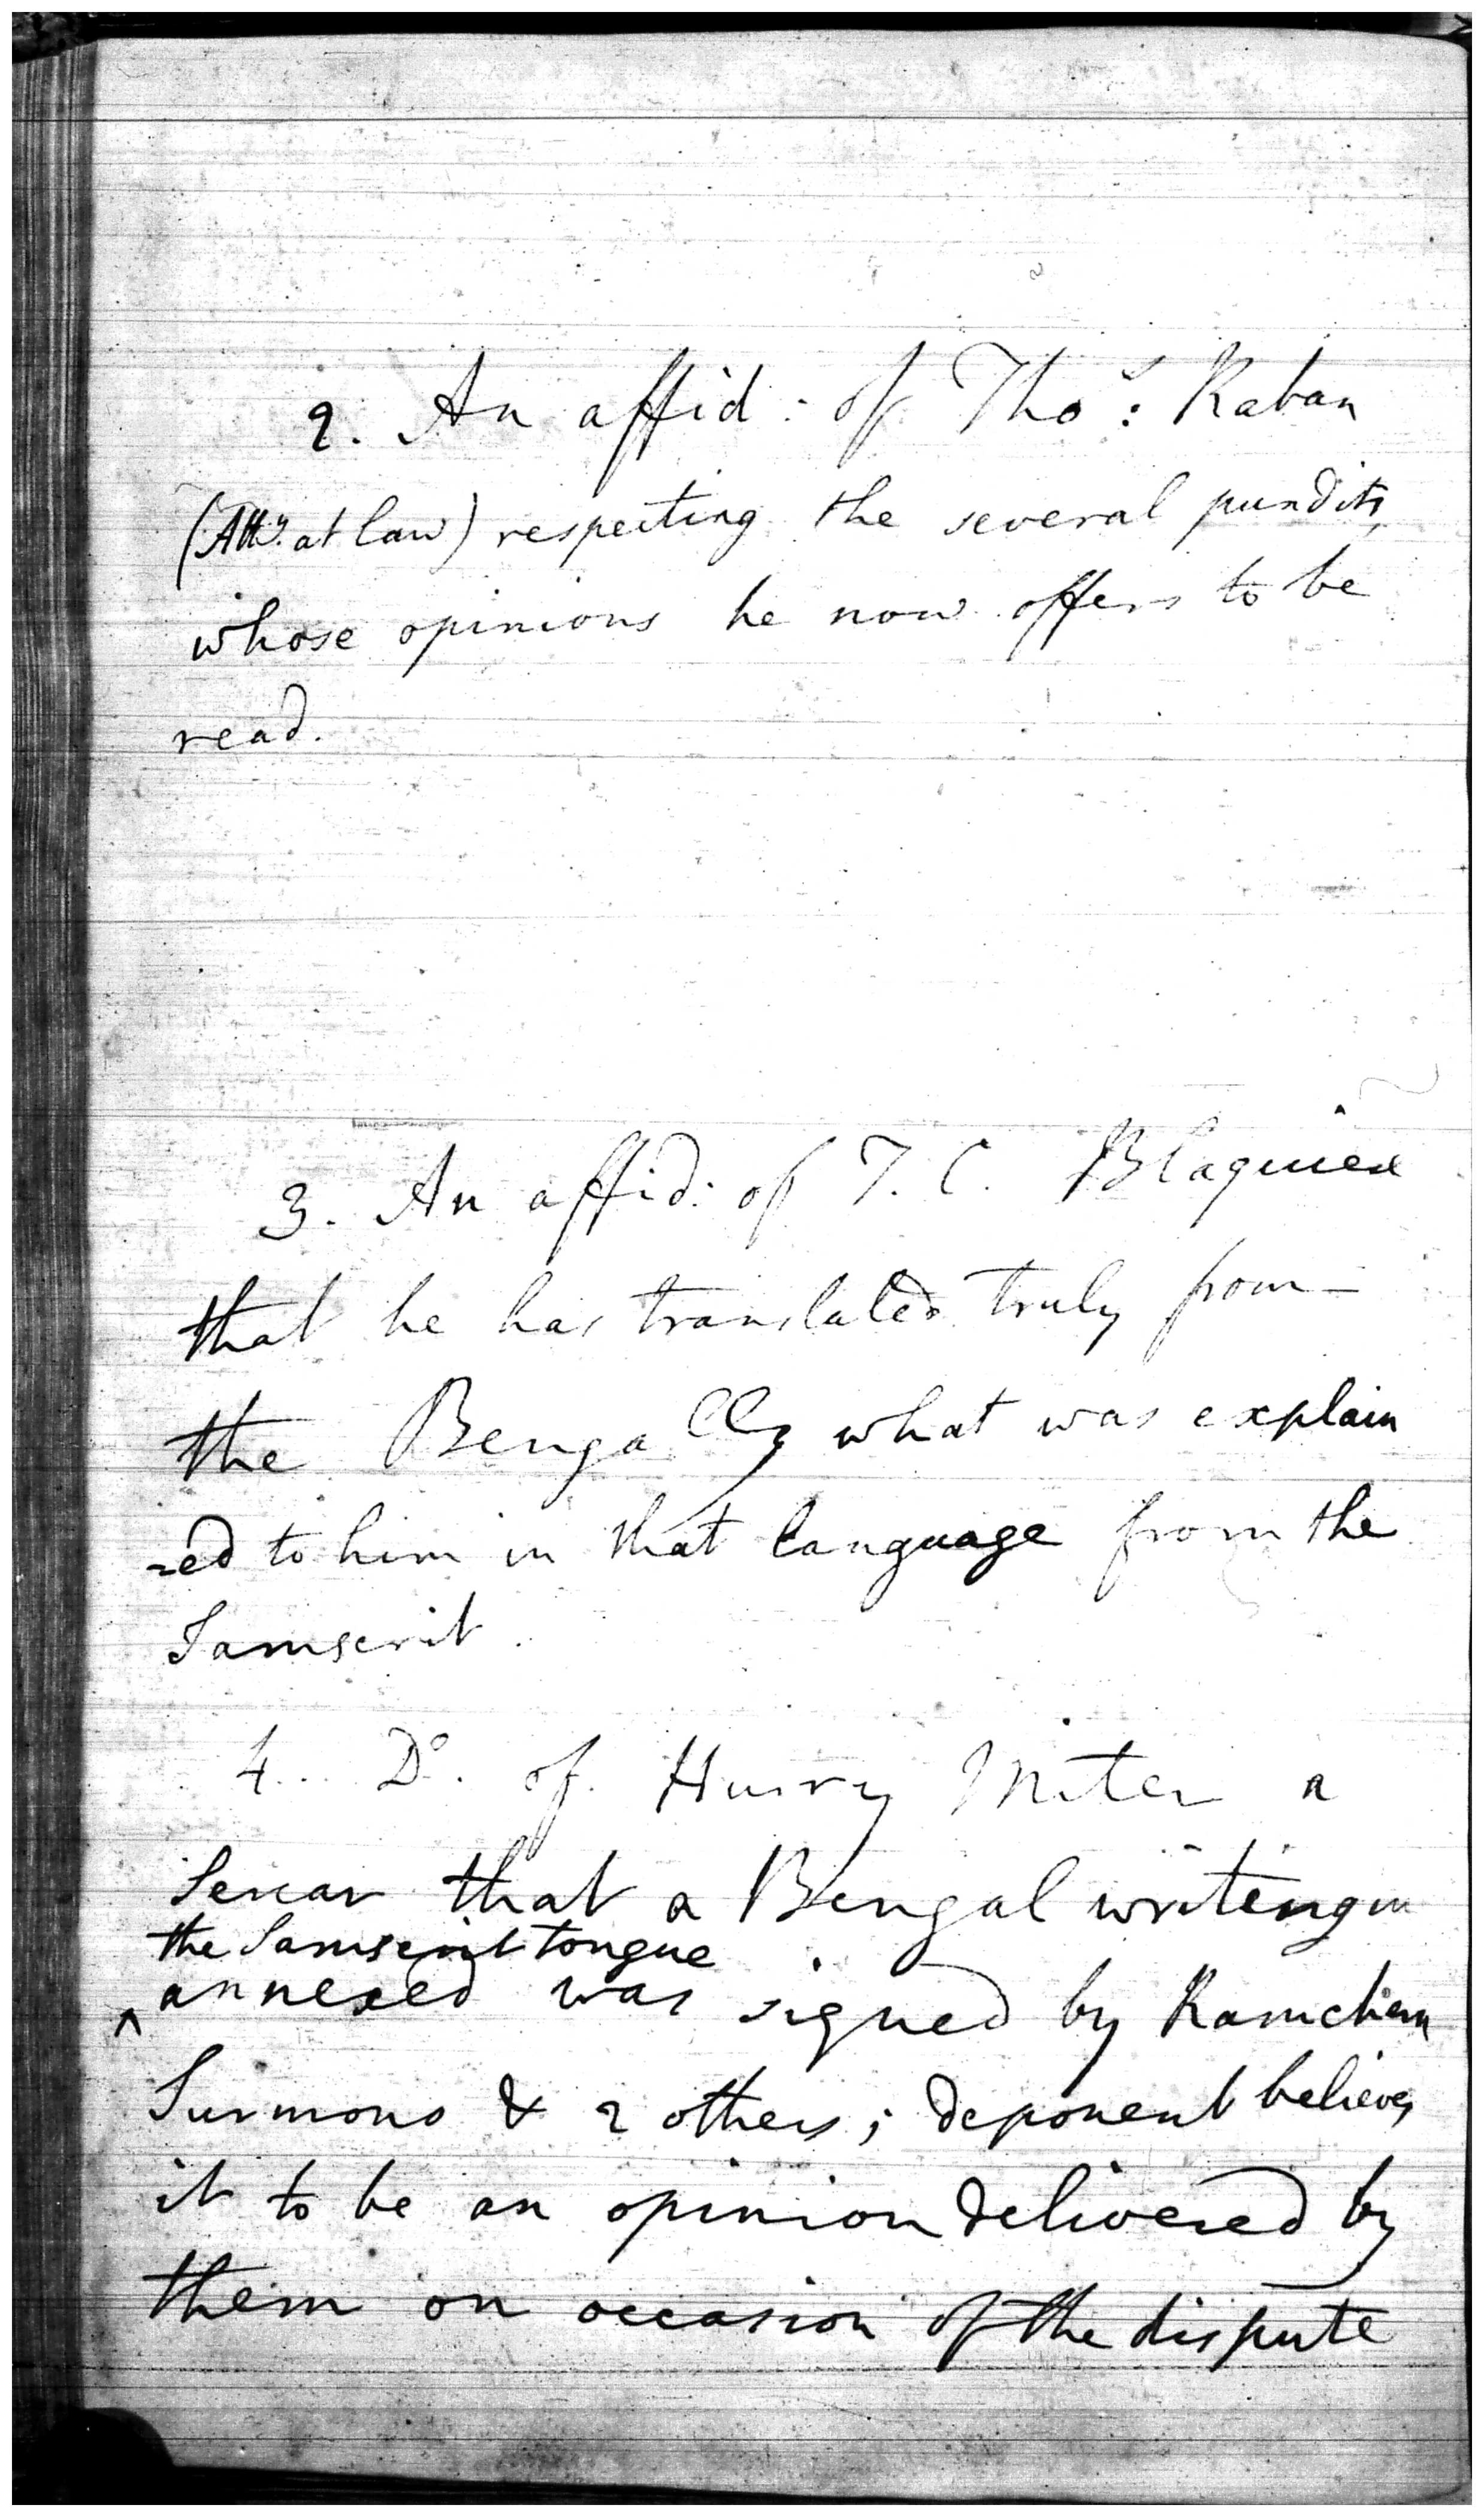 2. An affid: of Tho.s: Raban
(Att.y at law) respecting the several pundits,
whose opinions he now offers to be
read.
3. An affid: of T. C. Blaquiere
that he has translated truly from—
the Bengally what was explain
=ed to him in that language from the
Samscrit.
4. D.o of Hurry Miter a
Sercar that a Bengal writeing in
the Samscrit tongue
^ annexed was signed by Ramchern
Surmono & 2 others; deponent believes
it to be an opinion delivered by
them on occasion of the dispute